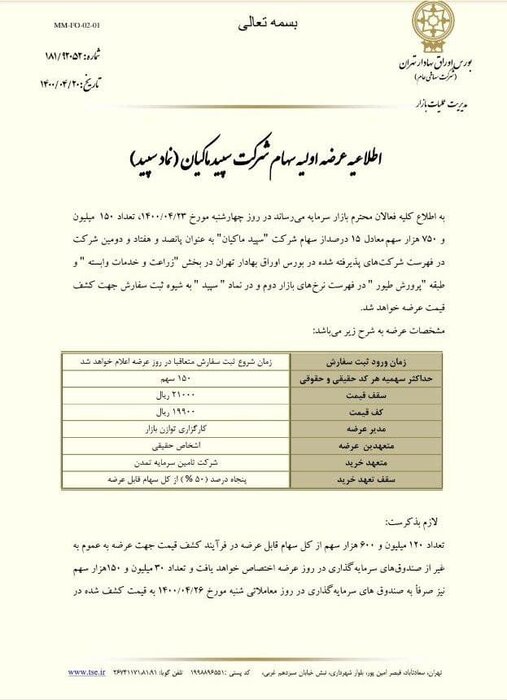 MM-FO-02-01
بسمه تعالی
بورس اوراق بهادار تهران
(شرکت سهامی عام)
مدیریت عملیات بازار
شماره: ۱۸۱/۹۲۰۵۲
تاریخ: ۱۴۰۰/۰۴/۲۰
اطلاعیه عرضه اولیه سهام شرکت سپید ماکیان (نماد سپید)
به اطلاع کلیه فعالان محترم بازار سرمایه می‌رساند در روز چهارشنبه مورخ ۱۴۰۰/۰۴/۲۳، تعداد ۱۵۰ میلیون
و ۷۵۰ هزار سهم معادل ۱۵ درصداز سهام شرکت "سپید ماکیان" به عنوان پانصد و هفتاد و دومین شرکت
در فهرست شرکت‌های پذیرفته شده در بورس اوراق بهادار تهران در بخش "زراعت و خدمات وابسته " و
طبقه "پرورش طیور " در فهرست نرخ‌های بازار دوم و در نماد " سپید " به شیوه ثبت سفارش جهت کشف
قیمت عرضه خواهد شد.
مشخصات عرضه به شرح زیر می‌باشد:
زمان ورود ثبت سفارش زمان شروع ثبت سفارش متعاقبا در روز عرضه اعلام خواهد شد
حداکثر سهمیه هر کد حقیقی و حقوقی ۱۵۰ سهم
سقف قیمت ۲۱۰۰۰ ریال
کف قیمت ۱۹۹۰۰ ریال
مدیر عرضه کارگزاری توازن بازار
متعهدین عرضه اشخاص حقیقی
متعهد خرید شرکت تامین سرمایه تمدن
سقف تعهد خرید پنجاه درصد (۵۰ %) از کل سهام قابل عرضه
لازم بذکرست:
تعداد ۱۲۰ میلیون و ۶۰۰ هزار سهم از کل سهام قابل عرضه در فرآیند کشف قیمت جهت عرضه به عموم به
غیر از صندوق‌های سرمایه‌گذاری در روز عرضه اختصاص خواهد یافت و تعداد ۳۰ میلیون و ۱۵۰هزار سهم
نیز صرفاً به صندوق های سرمایه‌گذاری در روز معاملاتی شنبه مورخ ۱۴۰۰/۰۴/۲۶ به قیمت کشف شده در
تهران، سعادتآباد، قیصر امین پور، بلوار شهرداری، نبش خیابان سیزدهم غربی، کد پستی :۱۹۹۸۸۹۶۵۵۱ تلفن گویا: ۲۶۷۴۱۱۷۱،۸۱،۹۱ www.tse.ir